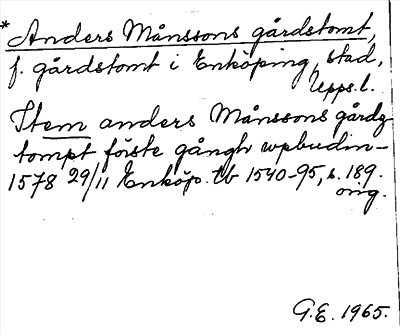 * Anders Månssons gårdstomt,
f. gårdstomt i Enköping, stad,
Upps.l.
Item anders Månssons gårdz
tompt förste gångh wpbudin-
1578 29/11 Enköp. tb 1540-95, s. 189.
orig.
G.E. 1965.